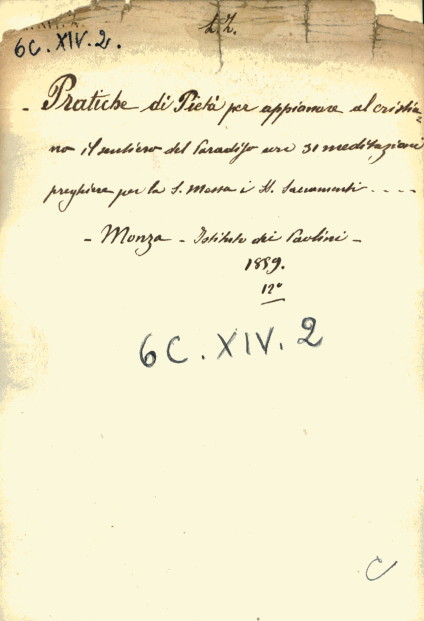 6C.XIV.2.
- Pratiche di Pietà per appianare al cristia=
no il sentiero del Paradiso con 31 meditazioni
preghiere per la S. Messa i SS. Sacramenti....
- Monza - Istituto dei Paolini -
1889.
12°
6C.XIV.2
C